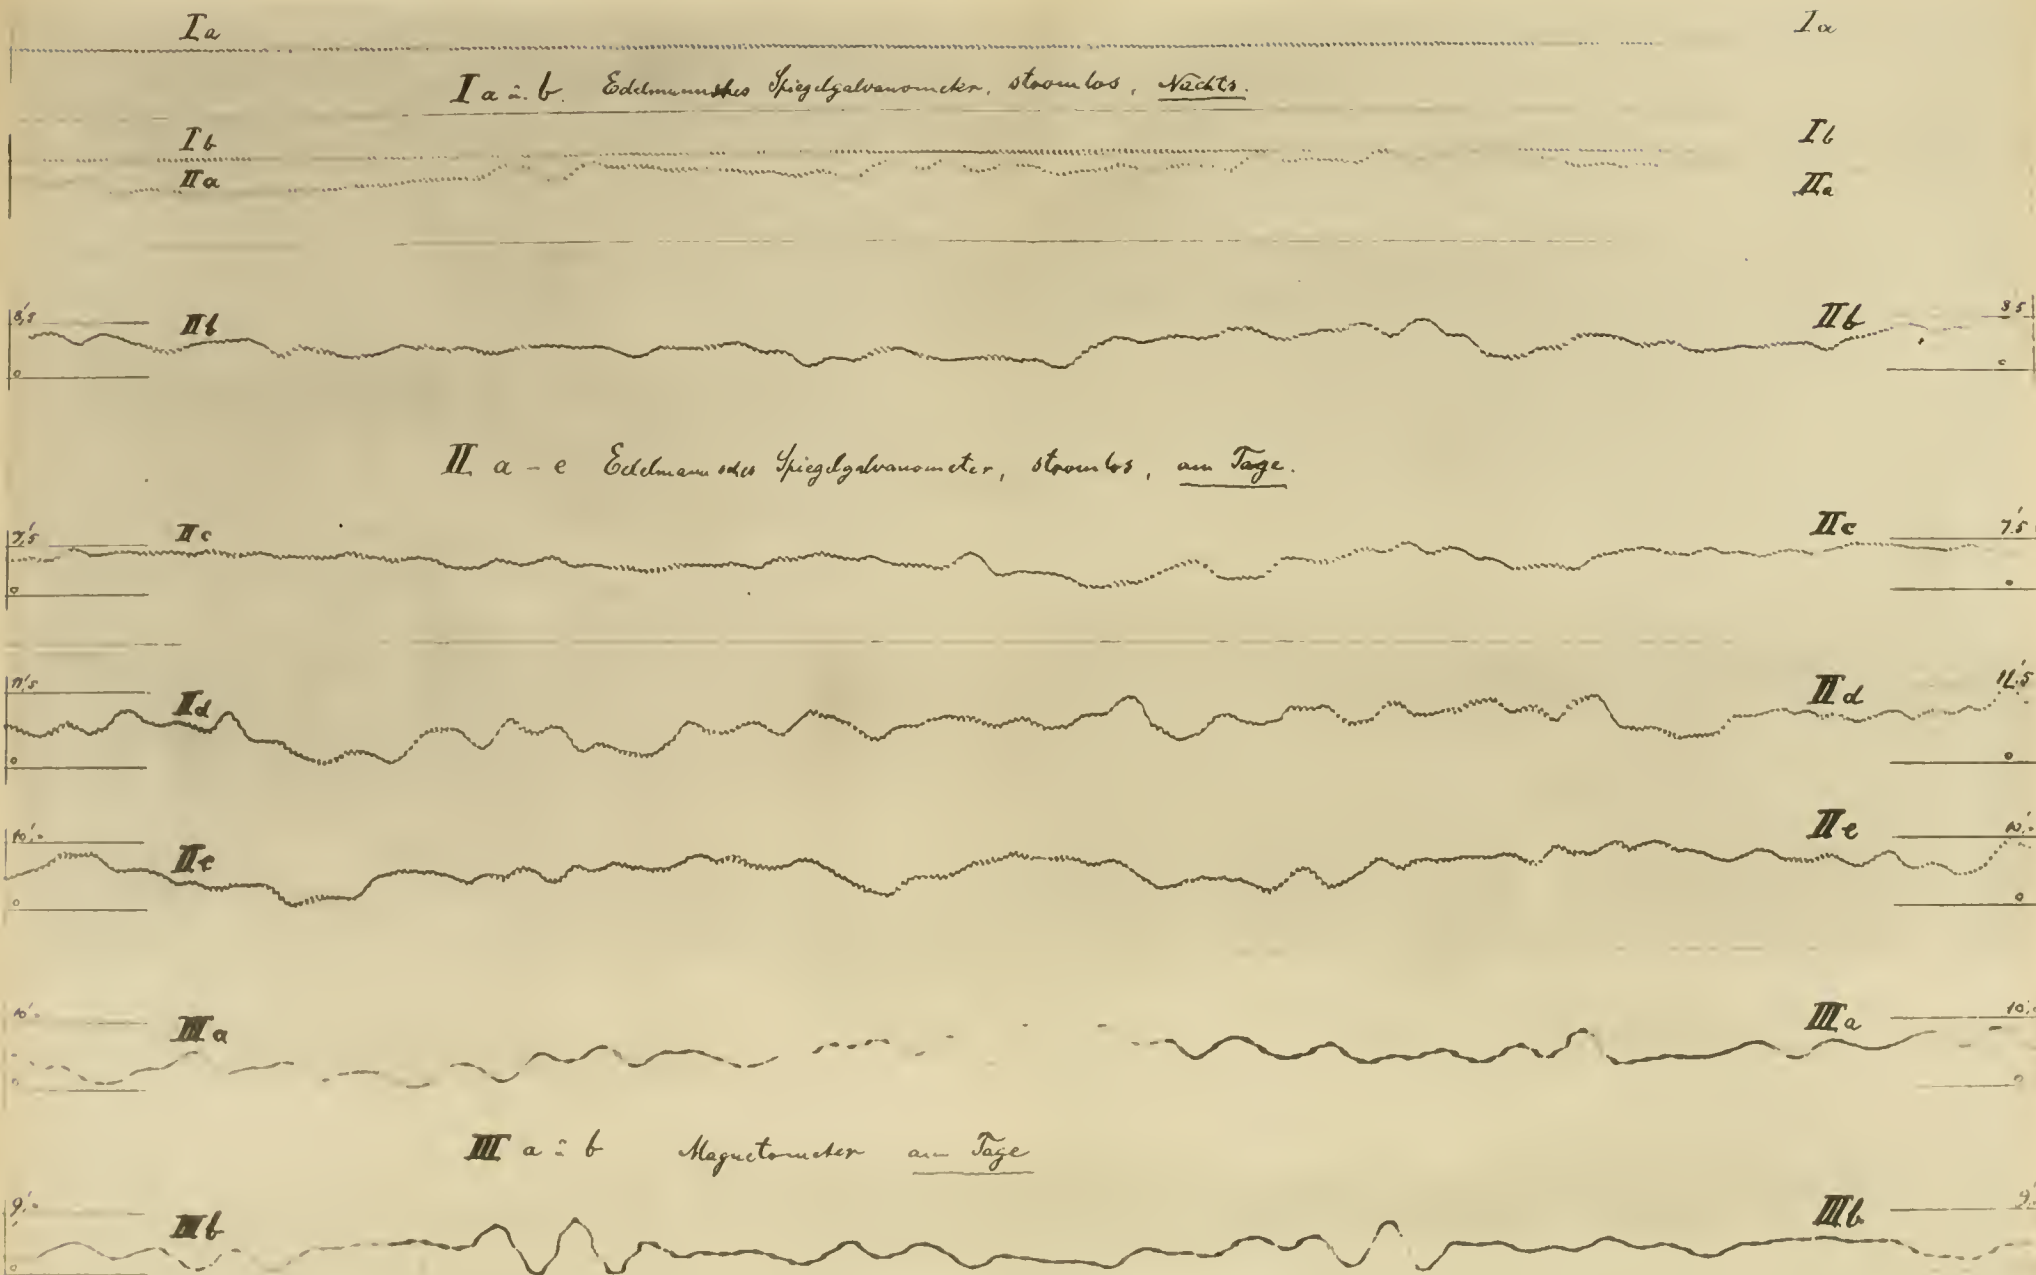 Ia Ia
I a u. b. Edelmannsches Spiegelgalvanometer, stromlos, Nachts.
Ib Ib
IIa IIa
8,'5 IIb IIb 8,5
0 0
II a - e Edelmannsches Spiegelgalvanometer, stromlos, am Tage.
7,'5 IIc IIc 7,'5
0 0
11,'5 IId IId 11,'5
0 0
10,'- IIe IIe 10,'-
0 0
10,'- IIIa IIIa 10,'
0
III a u. b Magnetometer am Tage
9,'- IIIb IIIb 9,'
0